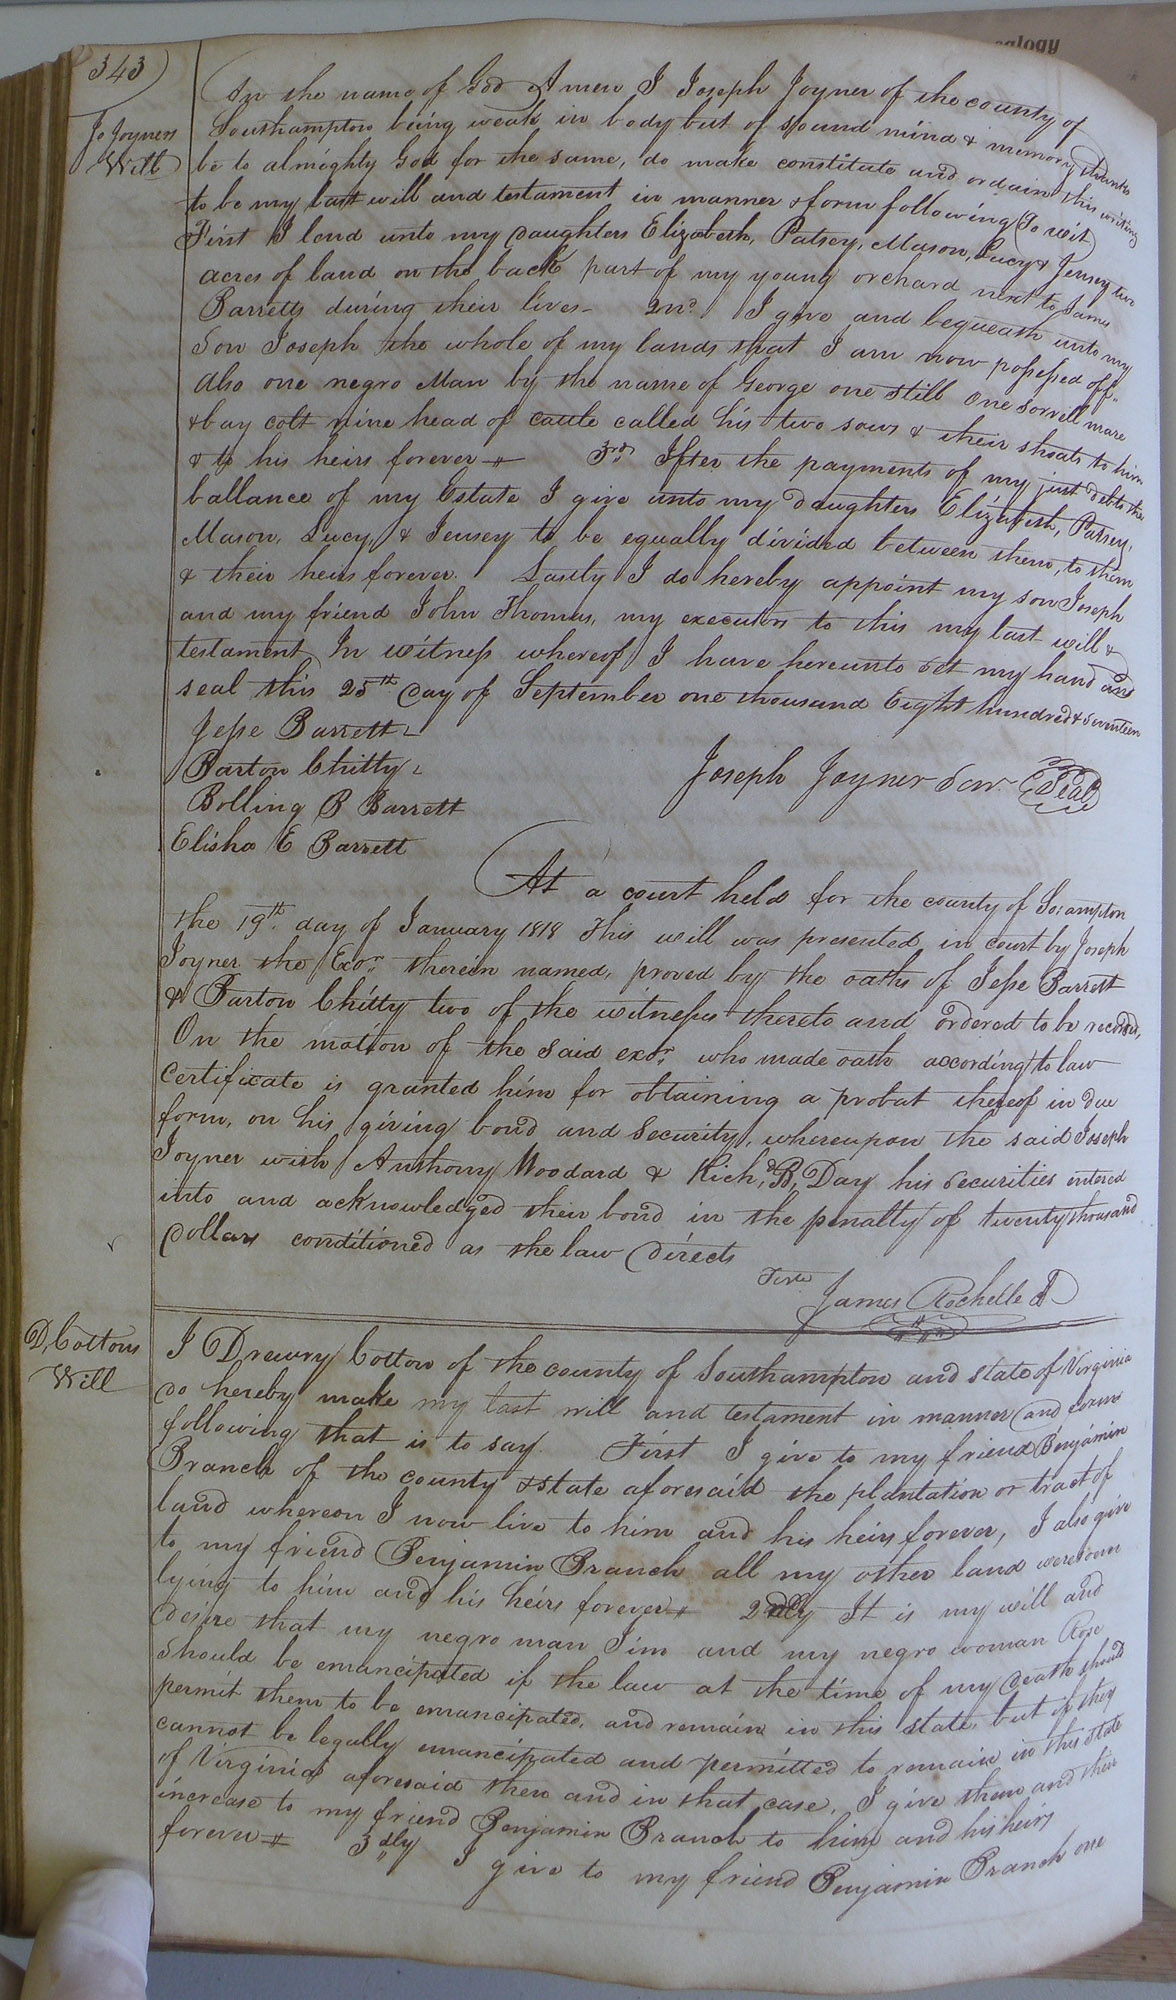 ealogy
343
Jo Joyners
Will
In the name of God Amen I Joseph Joyner of the county of
Southampton being weak in body but of sound mind & memory thanks
be to almighty God for the same, do make constitute and ordain this writing
to be my last will and testament in manner & form following (To wit)
First I lend unto my daughters Elizabeth, Patsey, Mason, Lucy & Jensey two
acres of land on the back part of my young orchard next to James
Barretts during their lives - 2nd. I give and bequeath unto my
Son Joseph the whole of my lands that I am now possessed off
Also one negro Man by the name of George one still One sorrill mare
& bay colt nine head of cattle called his two sows & their shoats to him
& to his heirs forever 3rd. After the payments of my just debts the
ballance of my Estate I give unto my daughters Elizabeth, Patsey,
Mason, Lucy, & Jensey to be equally divided between them, to them
& their heirs forever. Lastly I do hereby appoint my son Joseph
and my friend John Thomas, my executors to this my last will &
testament In witness whereof I have hereunto set my hand and
seal this 25th day of September one thousand Eight hundred & seventeen
Jesse Barrett
Barton Chitty
Bolling B Barrett
Elisha E Barrett
Joseph Joyner Sen. (Seal)
At a court held for the county of So:ampton
the 19th. day of January 1818 This will was presented in court by Joseph
Joyner the Exor. therein named, proved by the oaths of Jesse Barrett
& Barton Chitty two of the witnesses thereto and ordered to be recorded,
On the motion of the said exor. who made oath according to law
Certificate is granted him for obtaining a probat thereof in due
form, on his giving bond and Security, whereupon the said Joseph
Joyner with Anthony Woodard & Richd. B, Day his securities entered
into and acknowledged their bond in the penalty of twenty thousand
dollars conditioned as the law directs
Teste
James Rochelle
D, Cottons
Will
I Drewry Cotton of the county of Southampton and state of Virginia
do hereby make my last will and testament in manner and form
following that is to say. First I give to my friend Benjamin
Branch of the county & state aforesaid the plantation or tract of
land whereon I now live to him and his heirs forever, I also give
to my friend Benjamin Branch all my other land
lying to him and his heirs forever 2ndly It is my will and
desire that my negro man Jim and my negro woman Rose
should be emancipated if the law at the time of my death should
permit them to be emancipated, and remain in this state, but if they
cannot be legally emancipated and permitted to remain in this state
of Virginia aforesaid then and in that case, I give them and their
increase to my friend Benjamin Branch to him and his heirs
forever 3dly I give to my friend Benjamin Branch one